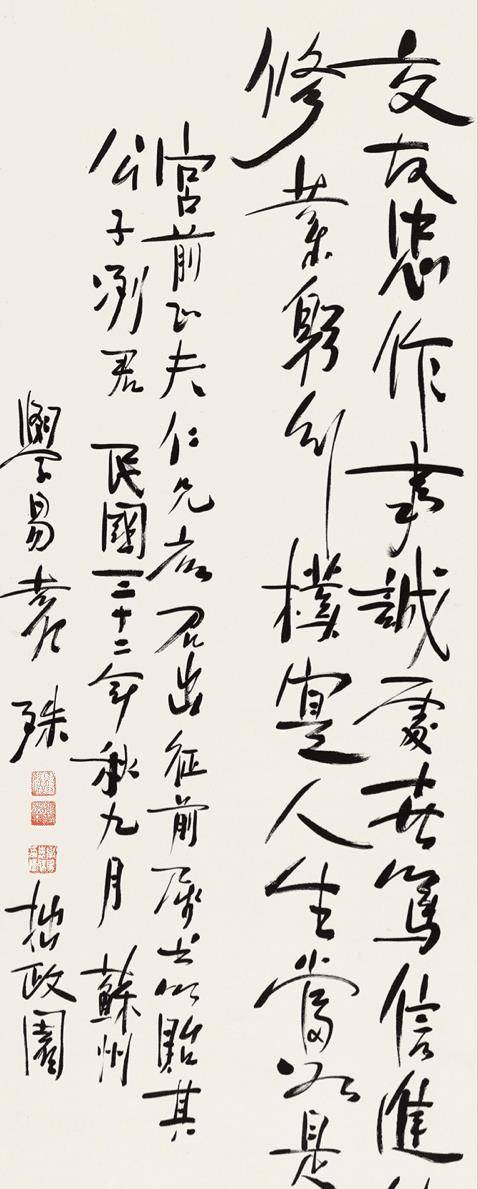 交友忠作事誠處世篤信進
修業躬行樸實人生當如是
宮前正夫仁兄應召出征前屬書以貽其
公子洌君 民國三十二年秋九月 蘇州
學易 殊 拙政園